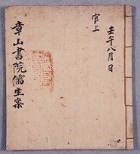 壬午八月日
官上
章山書院儒生案